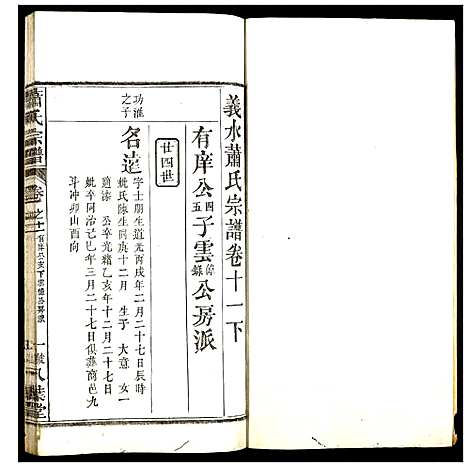 義水蕭氏宗譜卷十一下
有庠公四五子雲錦錄公房派
廿四世
功進之子
名遠
字士朋生道光丙戌年二月二十七日辰時
妣氏陳生同庚十二月 生子 大意 女一
適漆 公卒光緒乙亥年十二月二十七日
妣卒同治己巳年三月二十七日俱葬商邑九
斗冲卯山酉向
蕭氏宗譜
卷之十一
八葉堂